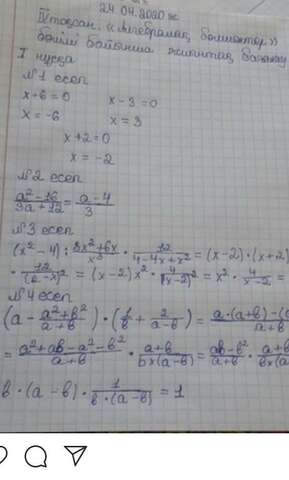 24.04.2020 ж
IV тоқсан. «Алгебралық бөлшектер»
бөлімі бойынша жиынтық бағалау
I нұсқа
№1 есеп
x+6=0 x-3=0
x=-6 x=3
x+2=0
x=-2
№2 есеп
a²-16/3a+12 = a-4/3
№3 есеп
(x²-4) : 3x²+6x/x³ · 12/4-4x+x² = (x-2)·(x+2)
· 12/(2-x)² = (x-2)x² · 4/(x-2)² = x² · 4/x-2 =
№4 есеп
(a - a²+b²/a+b) · (1/b + 2/a-b) = a·(a+b)-(
a+b
= a²+ab-a²-b²/a+b · a+b/b×(a-b) = ab-b²/a+b · a+b/b×(a
b·(a-b) · 1/b·(a-b) = 1